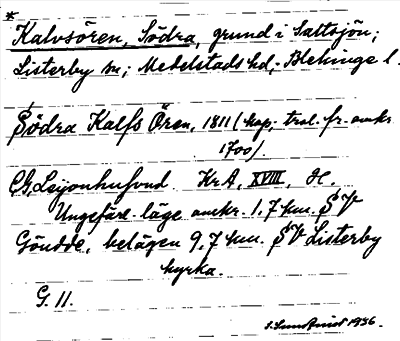 *
Kalvsören, Södra, grund i Saltsjön;
Listerby sn; Medelstads hd; Blekinge l.
Södra Kalfs Ören, 1811 (kop; trol. fr. omkr
1700).
CG Leijonhufvud KrA, XVIII,
Ungefärl. läge omkr. 1,7 km. SV
Göndde, belägen 9,7 km. SV Listerby
kyrka.
G. 11.
1936.